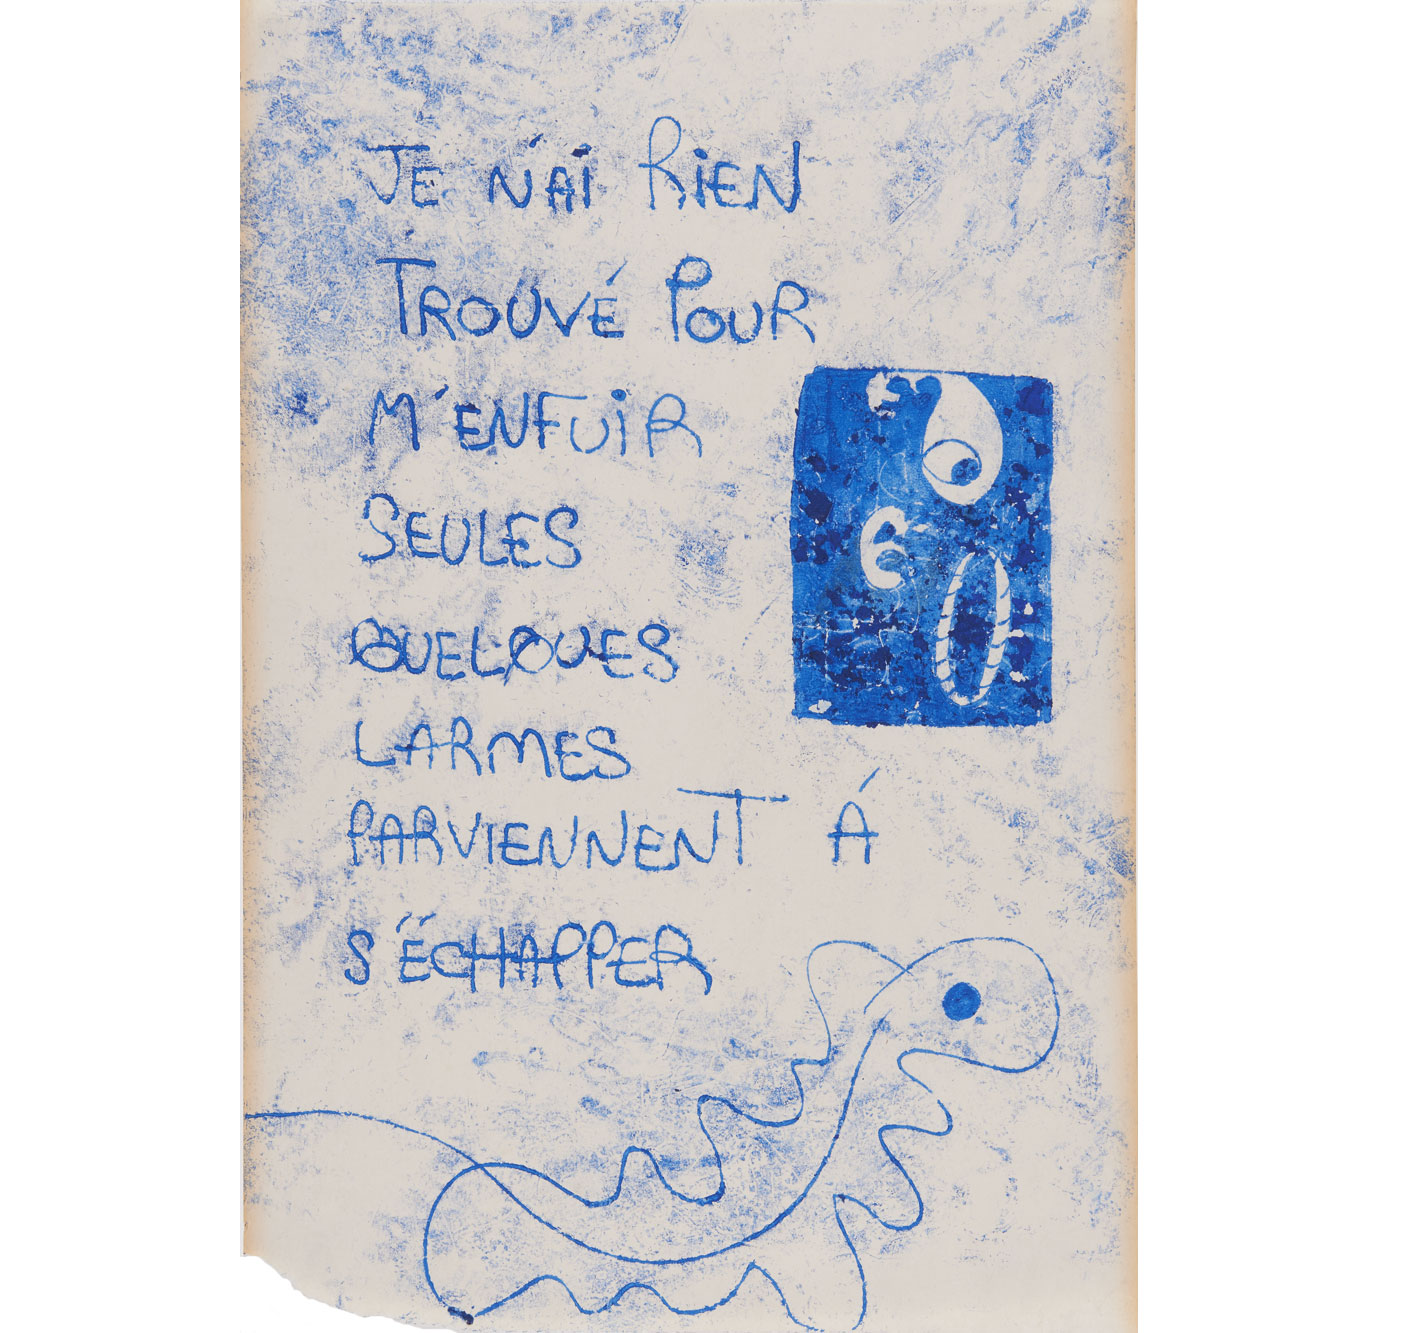 JE N'AI RIEN
TROUVÉ POUR
M'ENFUIR
SEULES
QUELQUES
LARMES
PARVIENNENT Á
S'ÉCHAPPER